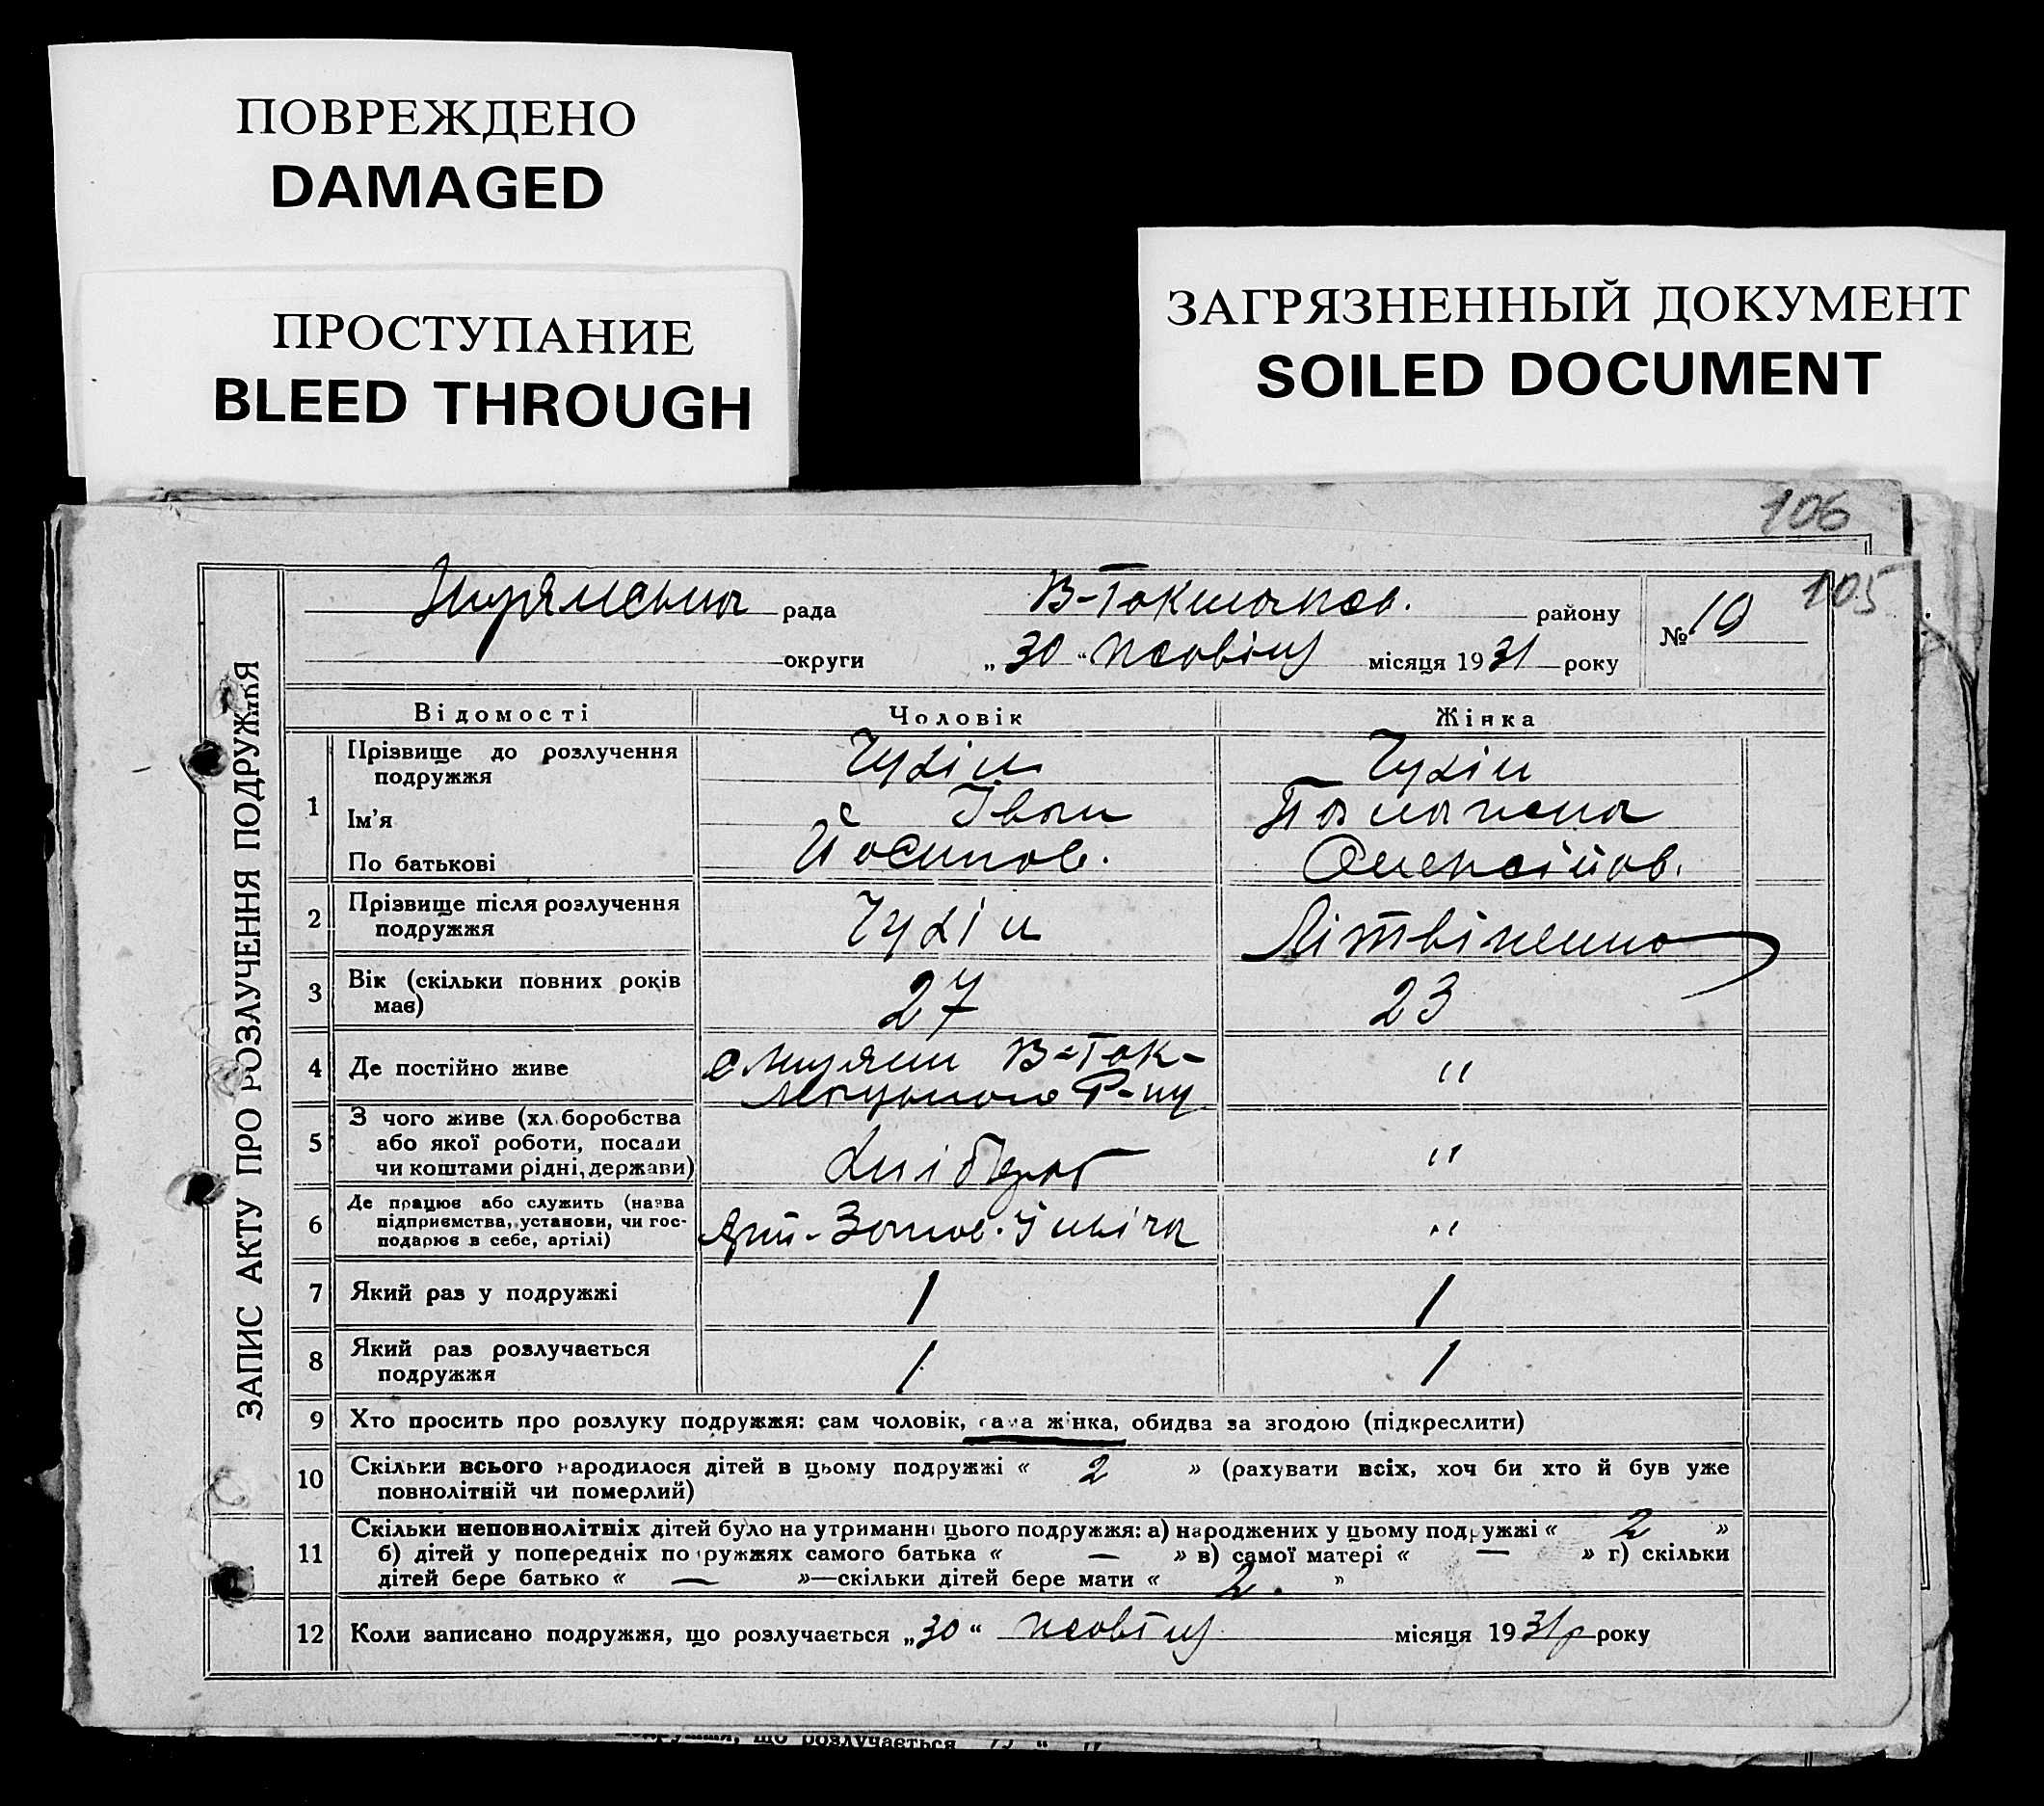 ПОВРЕЖДЕНО
DAMAGED
ПРОСТУПАНИЕ
BLEED THROUGH
ЗАГРЯЗНЕННЫЙ ДОКУМЕНТ
SOILED DOCUMENT
106
105
ЗАПИС АКТУ ПРО РОЗЛУЧЕННЯ ПОДРУЖЖЯ
рада В-Токмацьк. району
№ 19
округи „30“ жовтня місяця 1931 року
Відомості Чоловік Жінка
1 Прізвище до розлучення подружжя Чухін Чухін
Ім'я Іван
По батькові Йосипов. Олексійов.
2 Прізвище після розлучення подружжя Чухін Літвіненко
3 Вік (скільки повних років має) 27 23
4 Де постійно живе В-Ток- "
Р-ну
5 З чого живе (хліборобства або якої роботи, посади чи коштами рідні, держави) хлібороб "
6 Де працює або служить (назва підприємства, установи, чи господарює в себе, артілі) "
7 Який раз у подружжі 1 1
8 Який раз розлучається подружжя 1 1
9 Хто просить про розлуку подружжя: сам чоловік, сама жінка, обидва за згодою (підкреслити)
10 Скільки всього народилося дітей в цьому подружжі « 2 » (рахувати всіх, хоч би хто й був уже
повнолітній чи померлий)
11 Скільки неповнолітніх дітей було на утриманні цього подружжя: а) народжених у цьому подружжі « 2 »
б) дітей у попередніх подружжях самого батька « — » в) самої матері « — » г) скільки
дітей бере батько « — »—скільки дітей бере мати « 2. »
12 Коли записано подружжя, що розлучається „30“ жовтня місяця 1931р року